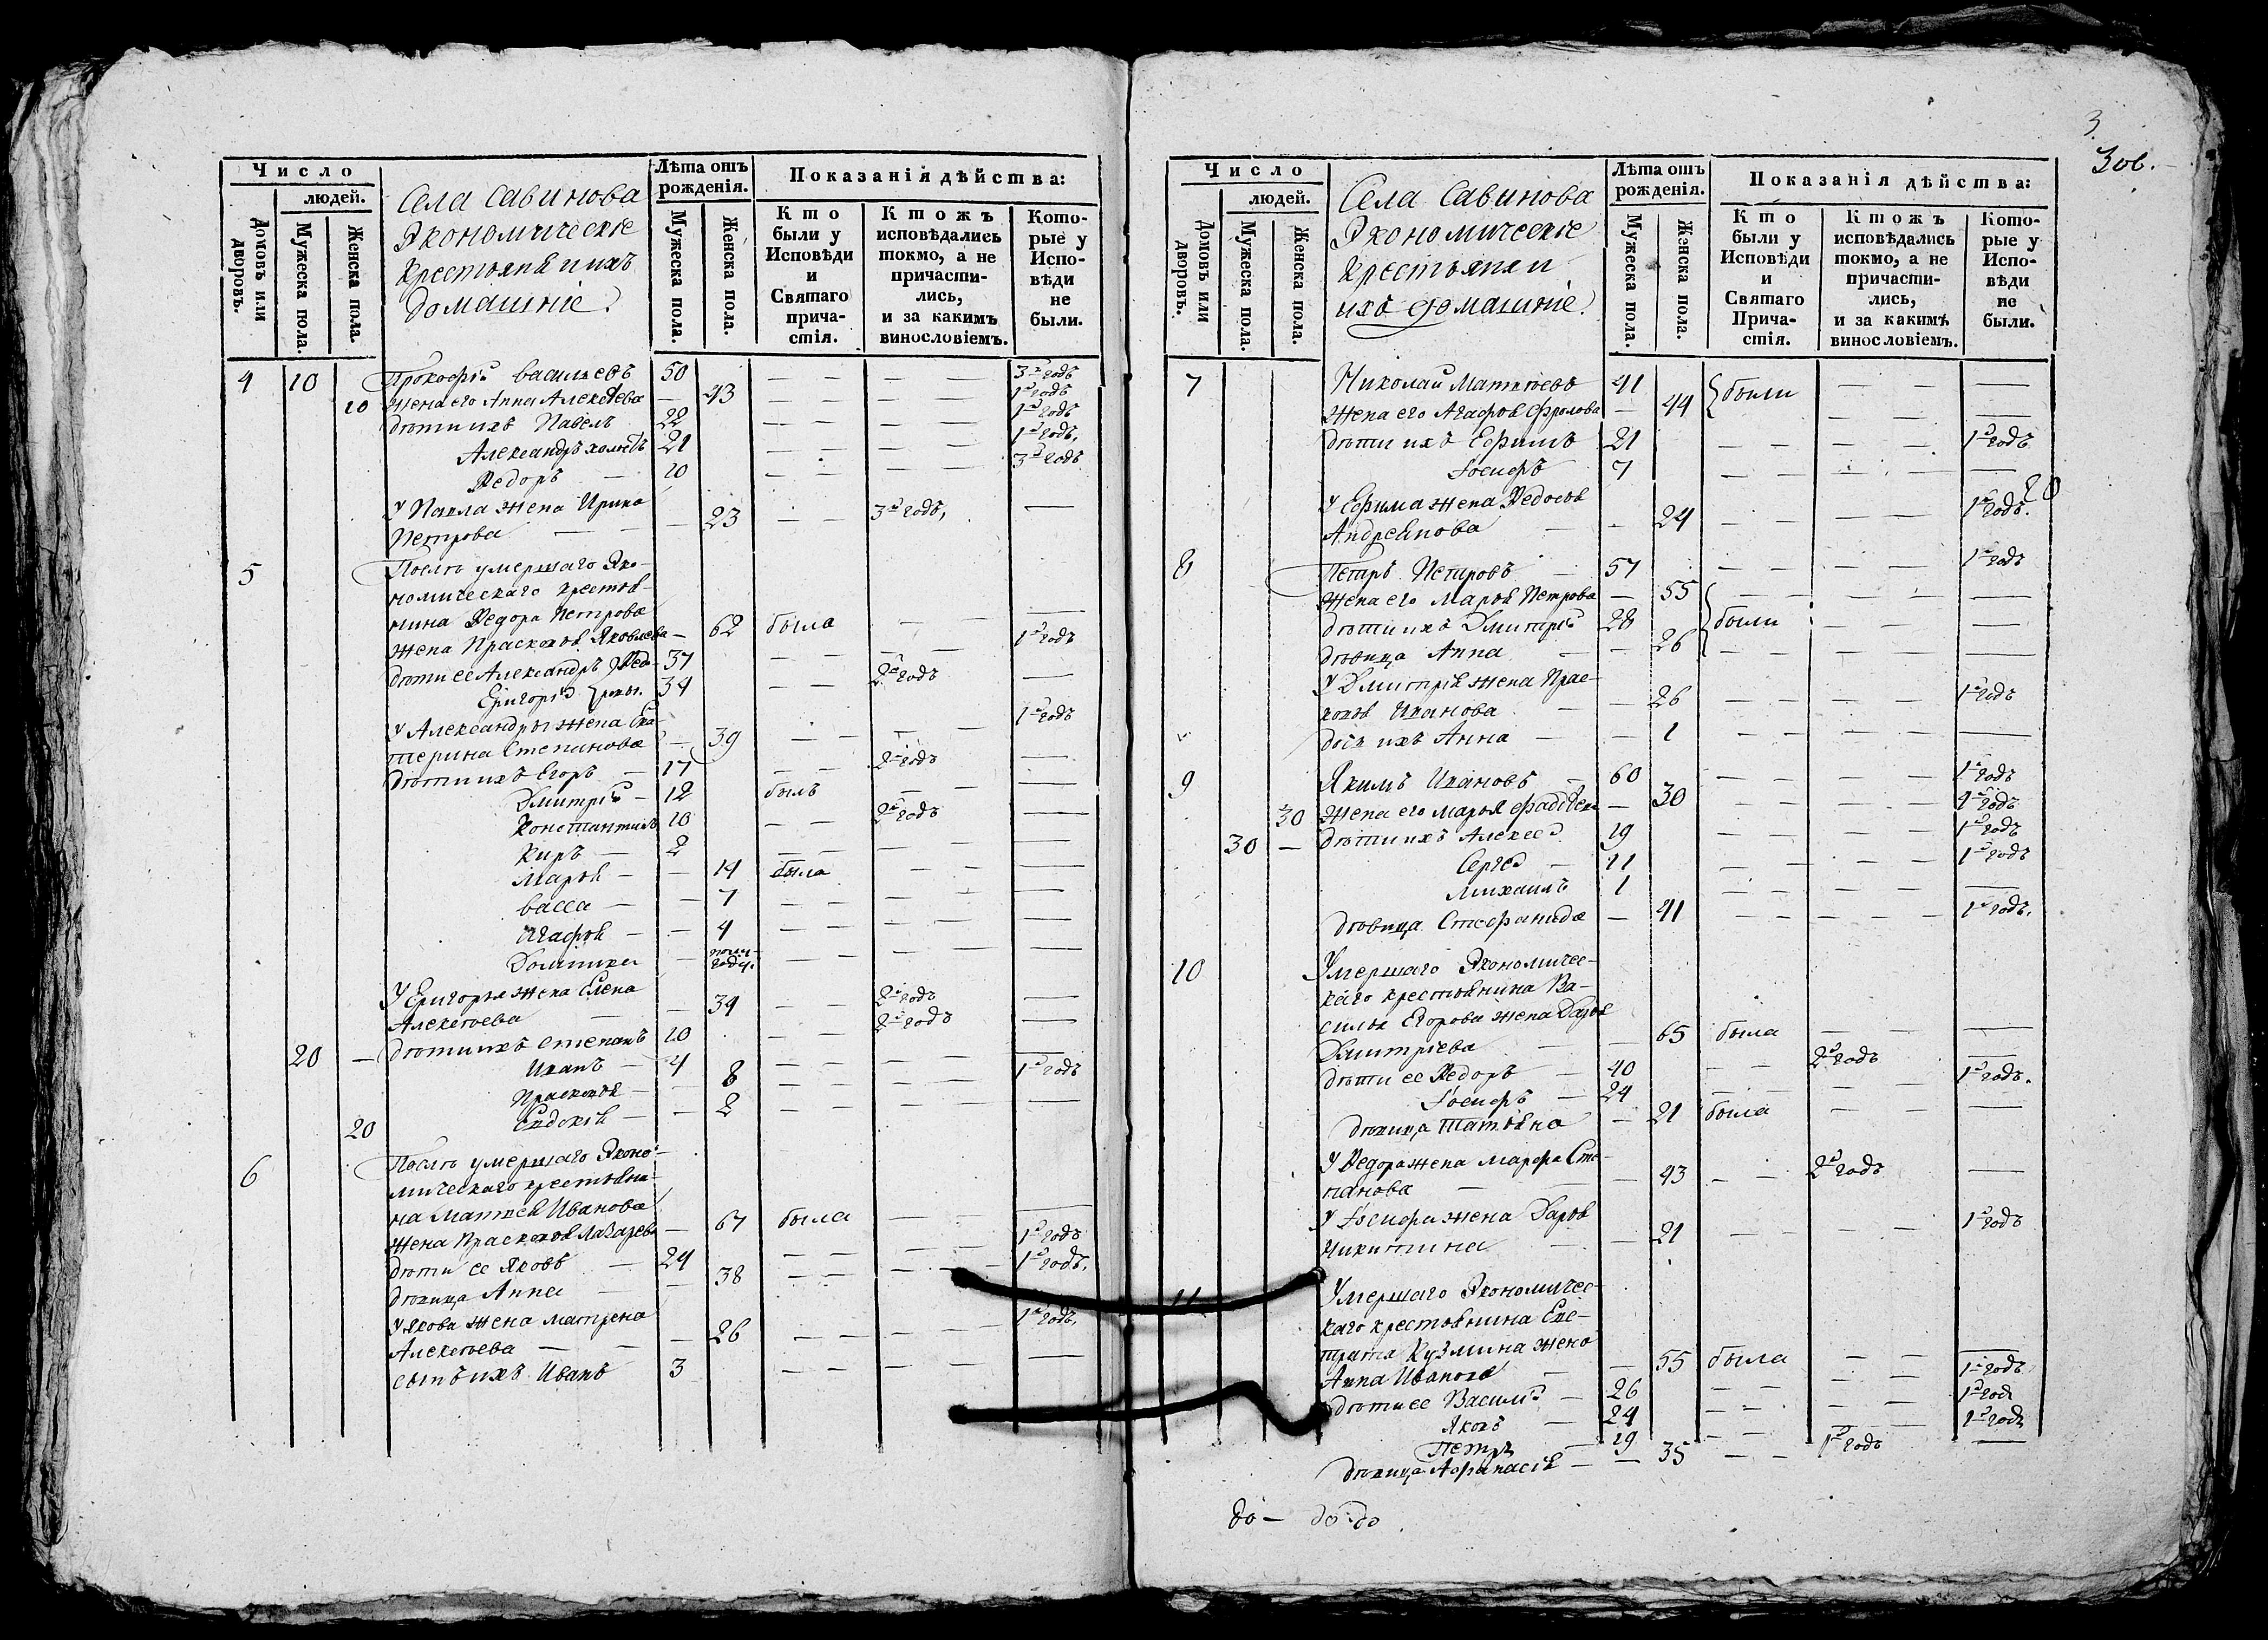 Число
людей.
Домовъ или дворовъ.
Мужеска пола.
Женска пола.
Села Савинова
Экономическiе
Крестьяня и ихъ
домашнiе.
Лѣта отъ
рожденiя.
Мужеска пола.
Женска пола.
Показанiя дѣйства:
Кто
были у
Исповѣди
и
Святаго
прича-
стiя.
Ктожъ
исповѣдались
токмо, а не
причасти-
лись,
и за какимъ
винословiемъ.
Кото-
рые у
Испо-
вѣди
не
были.
4 10 Прокофiй Васильевъ 50 — — — — 3й годъ
10 жена его Анна Алексѣева — 43 — — — — 1й годъ
дѣти ихъ Павелъ 22 — — — — 1й годъ
Александръ холостъ 21 — — — — 1й годъ.
Ѳедоръ — 10 — — — — 3й годъ
У Павла жена Ирина
Петрова — — — 23 — — 3й годъ, —
5 Послѣ умершаго Эко-
номическаго крестья-
нина Ѳедора Петрова
жена Прасковья Яковлева — 62 была — — —
дѣти ее Александръ Ѳедо- 37 — — — — 1й годъ
Григорiй ровы. 34 — — 2й годъ —
У Александры жена Ека-
терина Степанова — 39 — — — — 1й годъ
дѣти ихъ Егоръ — 17 — — 2й годъ —
Дмитрiй — 12 былъ — — —
Константинъ 10 — — 2й годъ —
Киръ — 2 — — — — —
Марья — — 14 была — — —
Васса — — 7 — — — — —
Агафья — — 4 — — — — —
Домника — полу-
году. — — — — —
У Григорья жена Елена
Алексѣева — — 34 — — 2й годъ —
20 — дѣти ихъ Степанъ 10 — — 2й годъ —
Иванъ — 4 — — — — —
Прасковья — — 8 — — — — 1й годъ
20 Евдокiя — — 2 — — — — —
6 Послѣ умершаго Эконо-
мическаго крестьяни-
на Матвея Иванова
жена Прасковья Лазарева — 67 была — — —
дѣти ее Яковъ — 24 — — — — 1й годъ
дѣвица Анна — — 38 — — — — 1й годъ.
У Якова жена Матрена
Алексѣева — — 26 — — — — 1й годъ.
сынъ ихъ Иванъ 3 — — — — —
3
3об.
Число
людей.
Домовъ или дворовъ.
Мужеска пола.
Женска пола.
Села Савинова
Экономическiе
Крестьяня и
ихъ домашнiе.
Лѣта отъ
рожденiя.
Мужеска пола.
Женска пола.
Показанiя дѣйства:
Кто
были у
Исповѣди
и
Святаго
Прича-
стiя.
Ктожъ
исповѣдались
токмо, а не
причасти-
лись,
и за какимъ
винословiемъ.
Кото-
рые у
Испо-
вѣди
не
были.
7 Николай Матвѣевъ 41 были — — —
жена его Агафья Фролова — 44 — — —
дѣти ихъ Ефимъ 21 — — — — 1й годъ
Iосифъ 7 — — — — —
У Ефима жена Ѳедосья
Андреянова — — 24 — — — — 1й годъ.
8 Петръ Петровъ — 57 — — — — 1й годъ
жена его Марья Петрова — 55 — — — — —
дѣти ихъ Дмитрiй 28 были — — —
дѣвица Анна — — 26 — — — — —
У Дмитрiя жена Прас-
ковья Иванова — — 26 — — — — 1й годъ
дочь ихъ Анна — — 1 — — — — —
9 Якимъ Ивановъ — 60 — — — — 1й годъ
30 жена его Марья — 30 — — — —
30 — дѣти ихъ Алексей 19 — — — — 1й годъ
Сергей — 11 — — — — 1й годъ
Михаилъ 1 — — — — —
дѣвица Стефанида — 41 — — — — 1й годъ.
10 Умершаго Экономичес-
каго крестьянина Ва-
силья Егорова жена Дарья
Дмитрiева — — 65 была — — —
дѣти ее Ѳедоръ — 40 — — 2й годъ —
Iосифъ — 24 — — — — 1й годъ.
дѣвица Татьяна — 21 была — — —
У Ѳедора жена Марфа Сте-
панова — — — 43 — — 2й годъ —
У Iосифа жена Дарья
Никитина — — 21 — — — — 1й годъ
11 Умершаго Экономичес-
каго крестьянина Евс-
трата Кузмина жена
Анна Иванова — 55 была — — —
дѣти ее Василiй — 26 — — — — 1й годъ
Яковъ — 24 — — — — 1й годъ
Петръ — 19 — — — —
дѣвица Афанасiя — — 35 — — 1й годъ —
до — до до